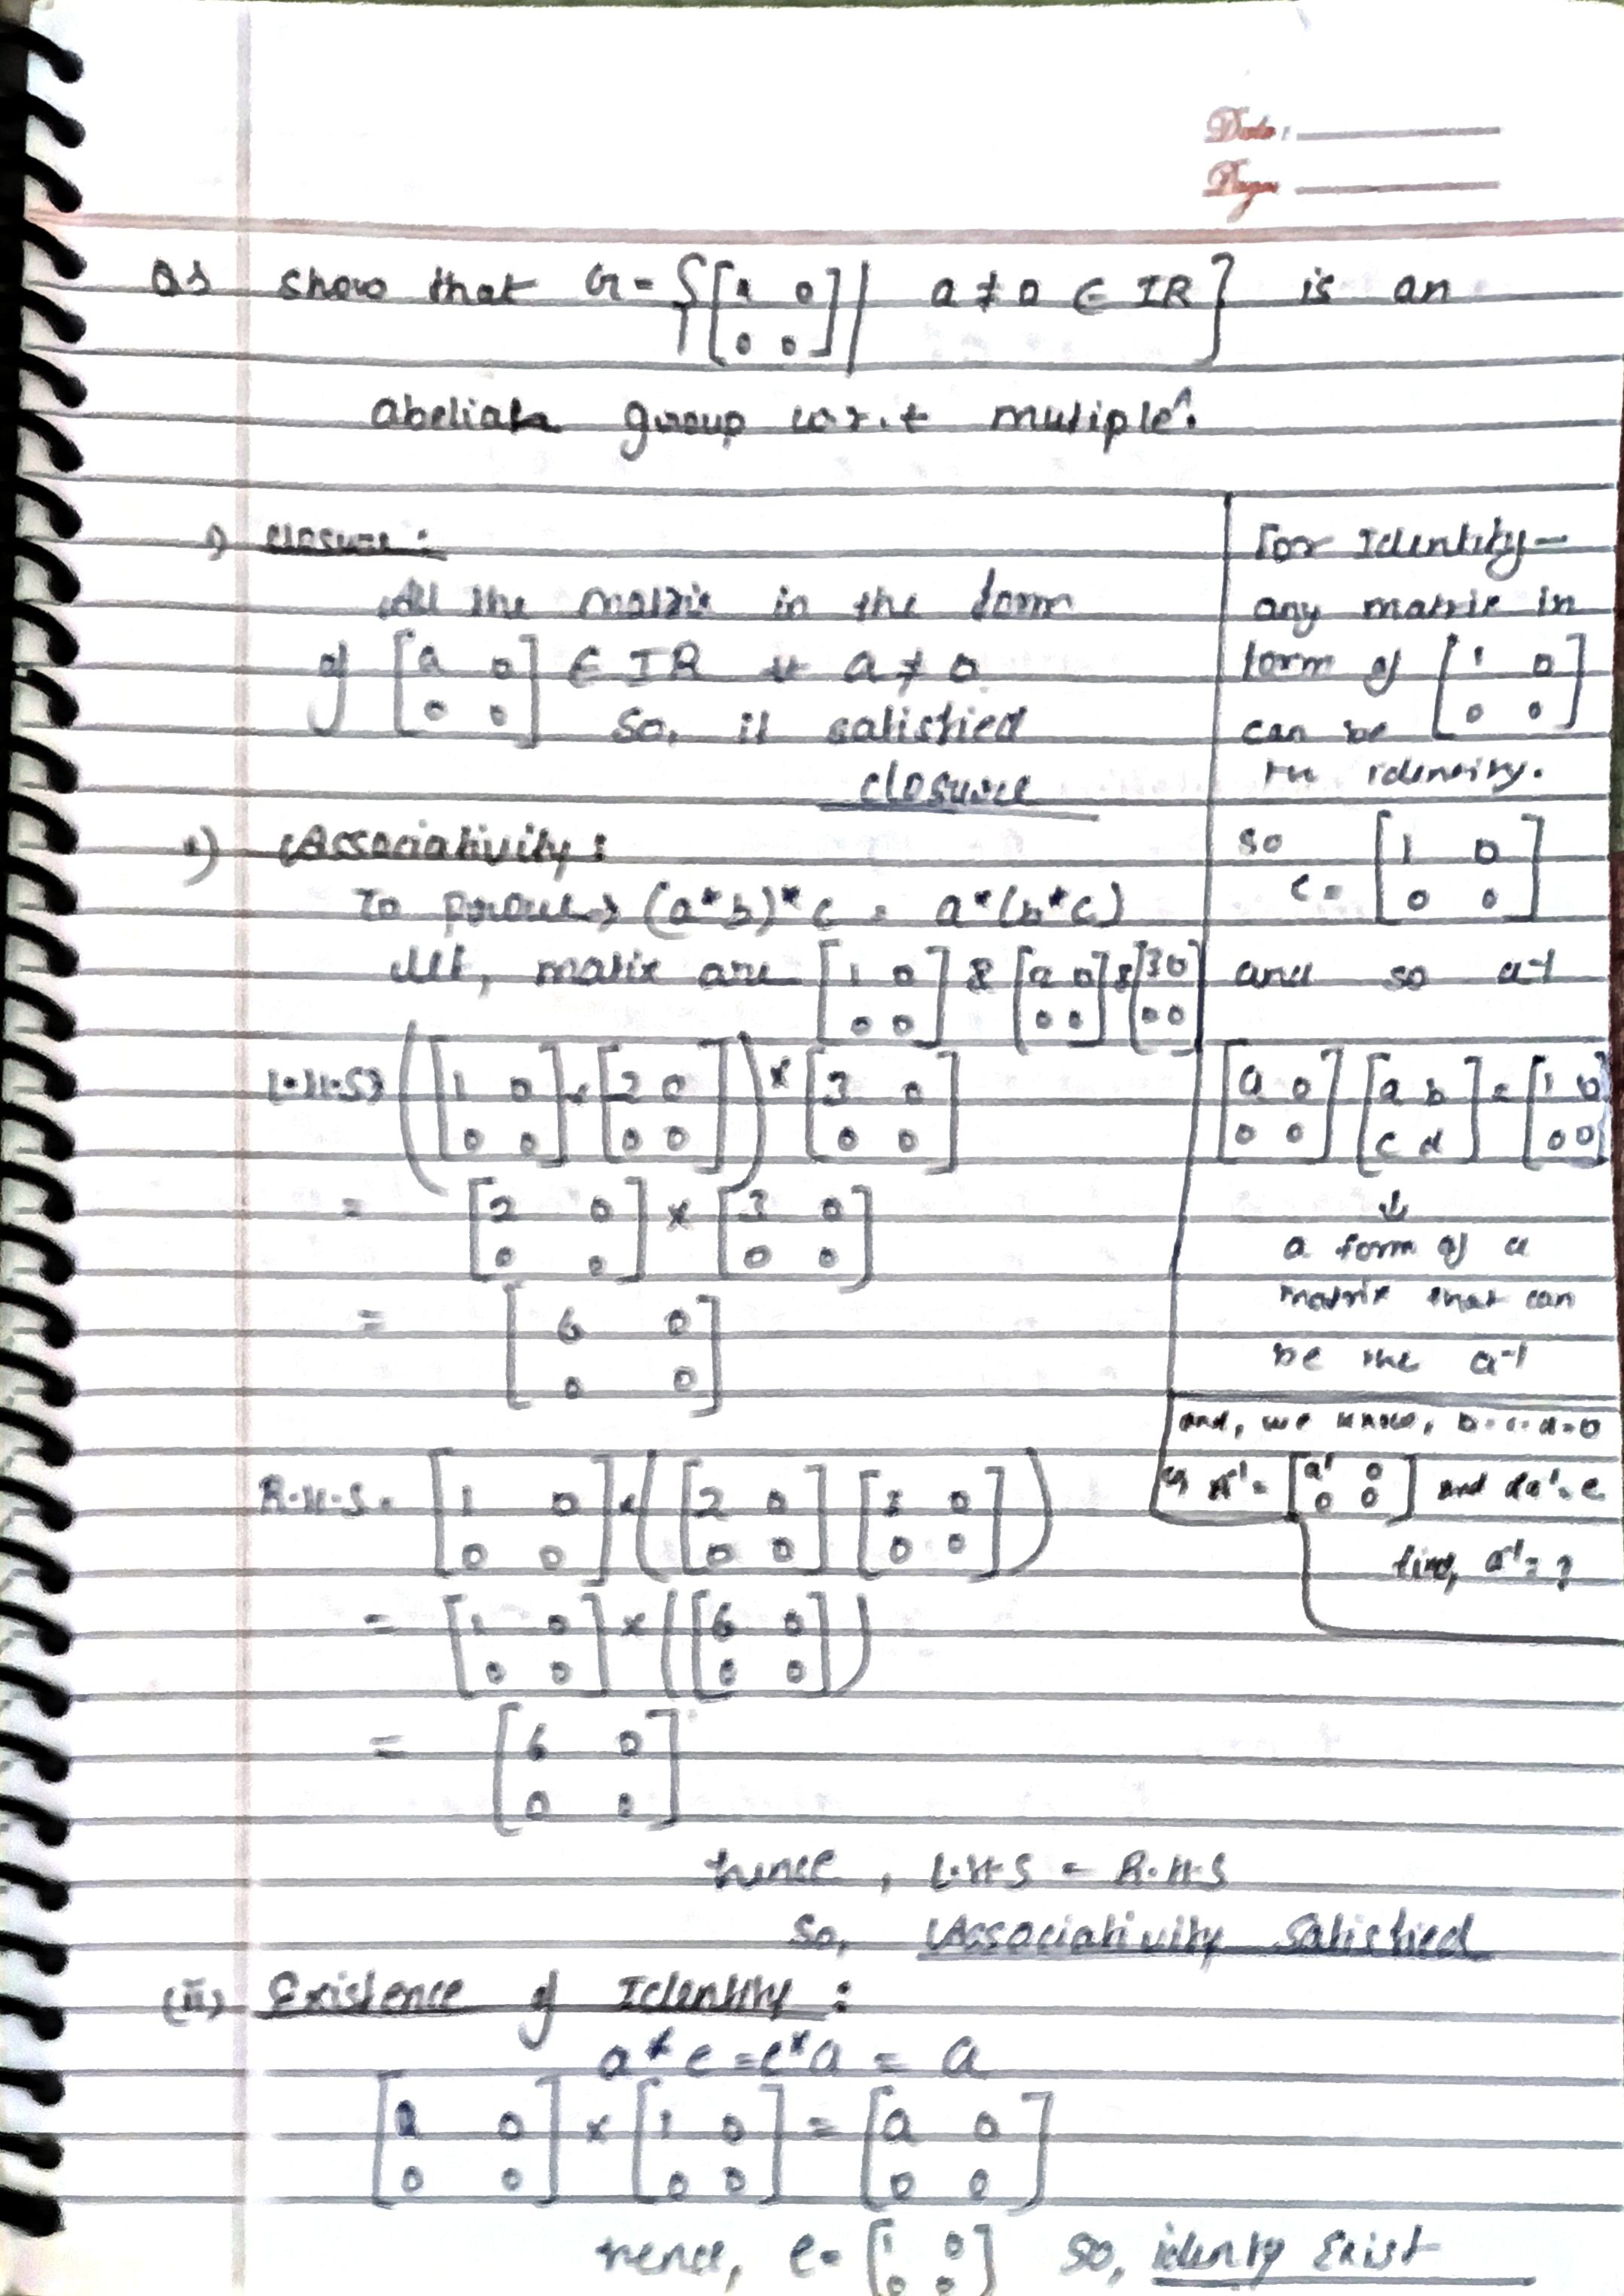 Date:
Page
Q3 show that G = {[a 0
0 0] | a ≠ 0 ∈ IR} is an
abelian group w.r.t multiple^n.
i) closure:
All the matrix in the form
of [a 0
0 0] ∈ IR & a ≠ 0
So, it satisfied
closure
ii) Associativity:
To prove → (a*b)*c = a*(b*c)
let, matix are [1 0
0 0] & [2 0
0 0] & [3 0
0 0]
L.H.S → ([1 0
0 0] × [2 0
0 0]) × [3 0
0 0]
= [2 0
0 0] × [3 0
0 0]
= [6 0
0 0]
R.H.S = [1 0
0 0] × ([2 0
0 0] [3 0
0 0])
= [1 0
0 0] × ([6 0
0 0])
= [6 0
0 0]
hence, L.H.S = R.H.S
So, Associativity Satisfied
(iii) Existence of Identity:
a*e = e*a = a
[a 0
0 0] × [1 0
0 0] = [a 0
0 0]
hence, e = [1 0
0 0] so, identy Exist
For Identity-
any matrix in
form of [1 0
0 0]
can be
the identity.
so
e = [1 0
0 0]
and so a⁻¹
[a 0
0 0] [a b
c d] = [1 0
0 0]
↓
a form of a
matrix that can
be the a⁻¹
and, we know, b=c=d=0
[a' 0
0 0] and
find, a⁻¹ = ?